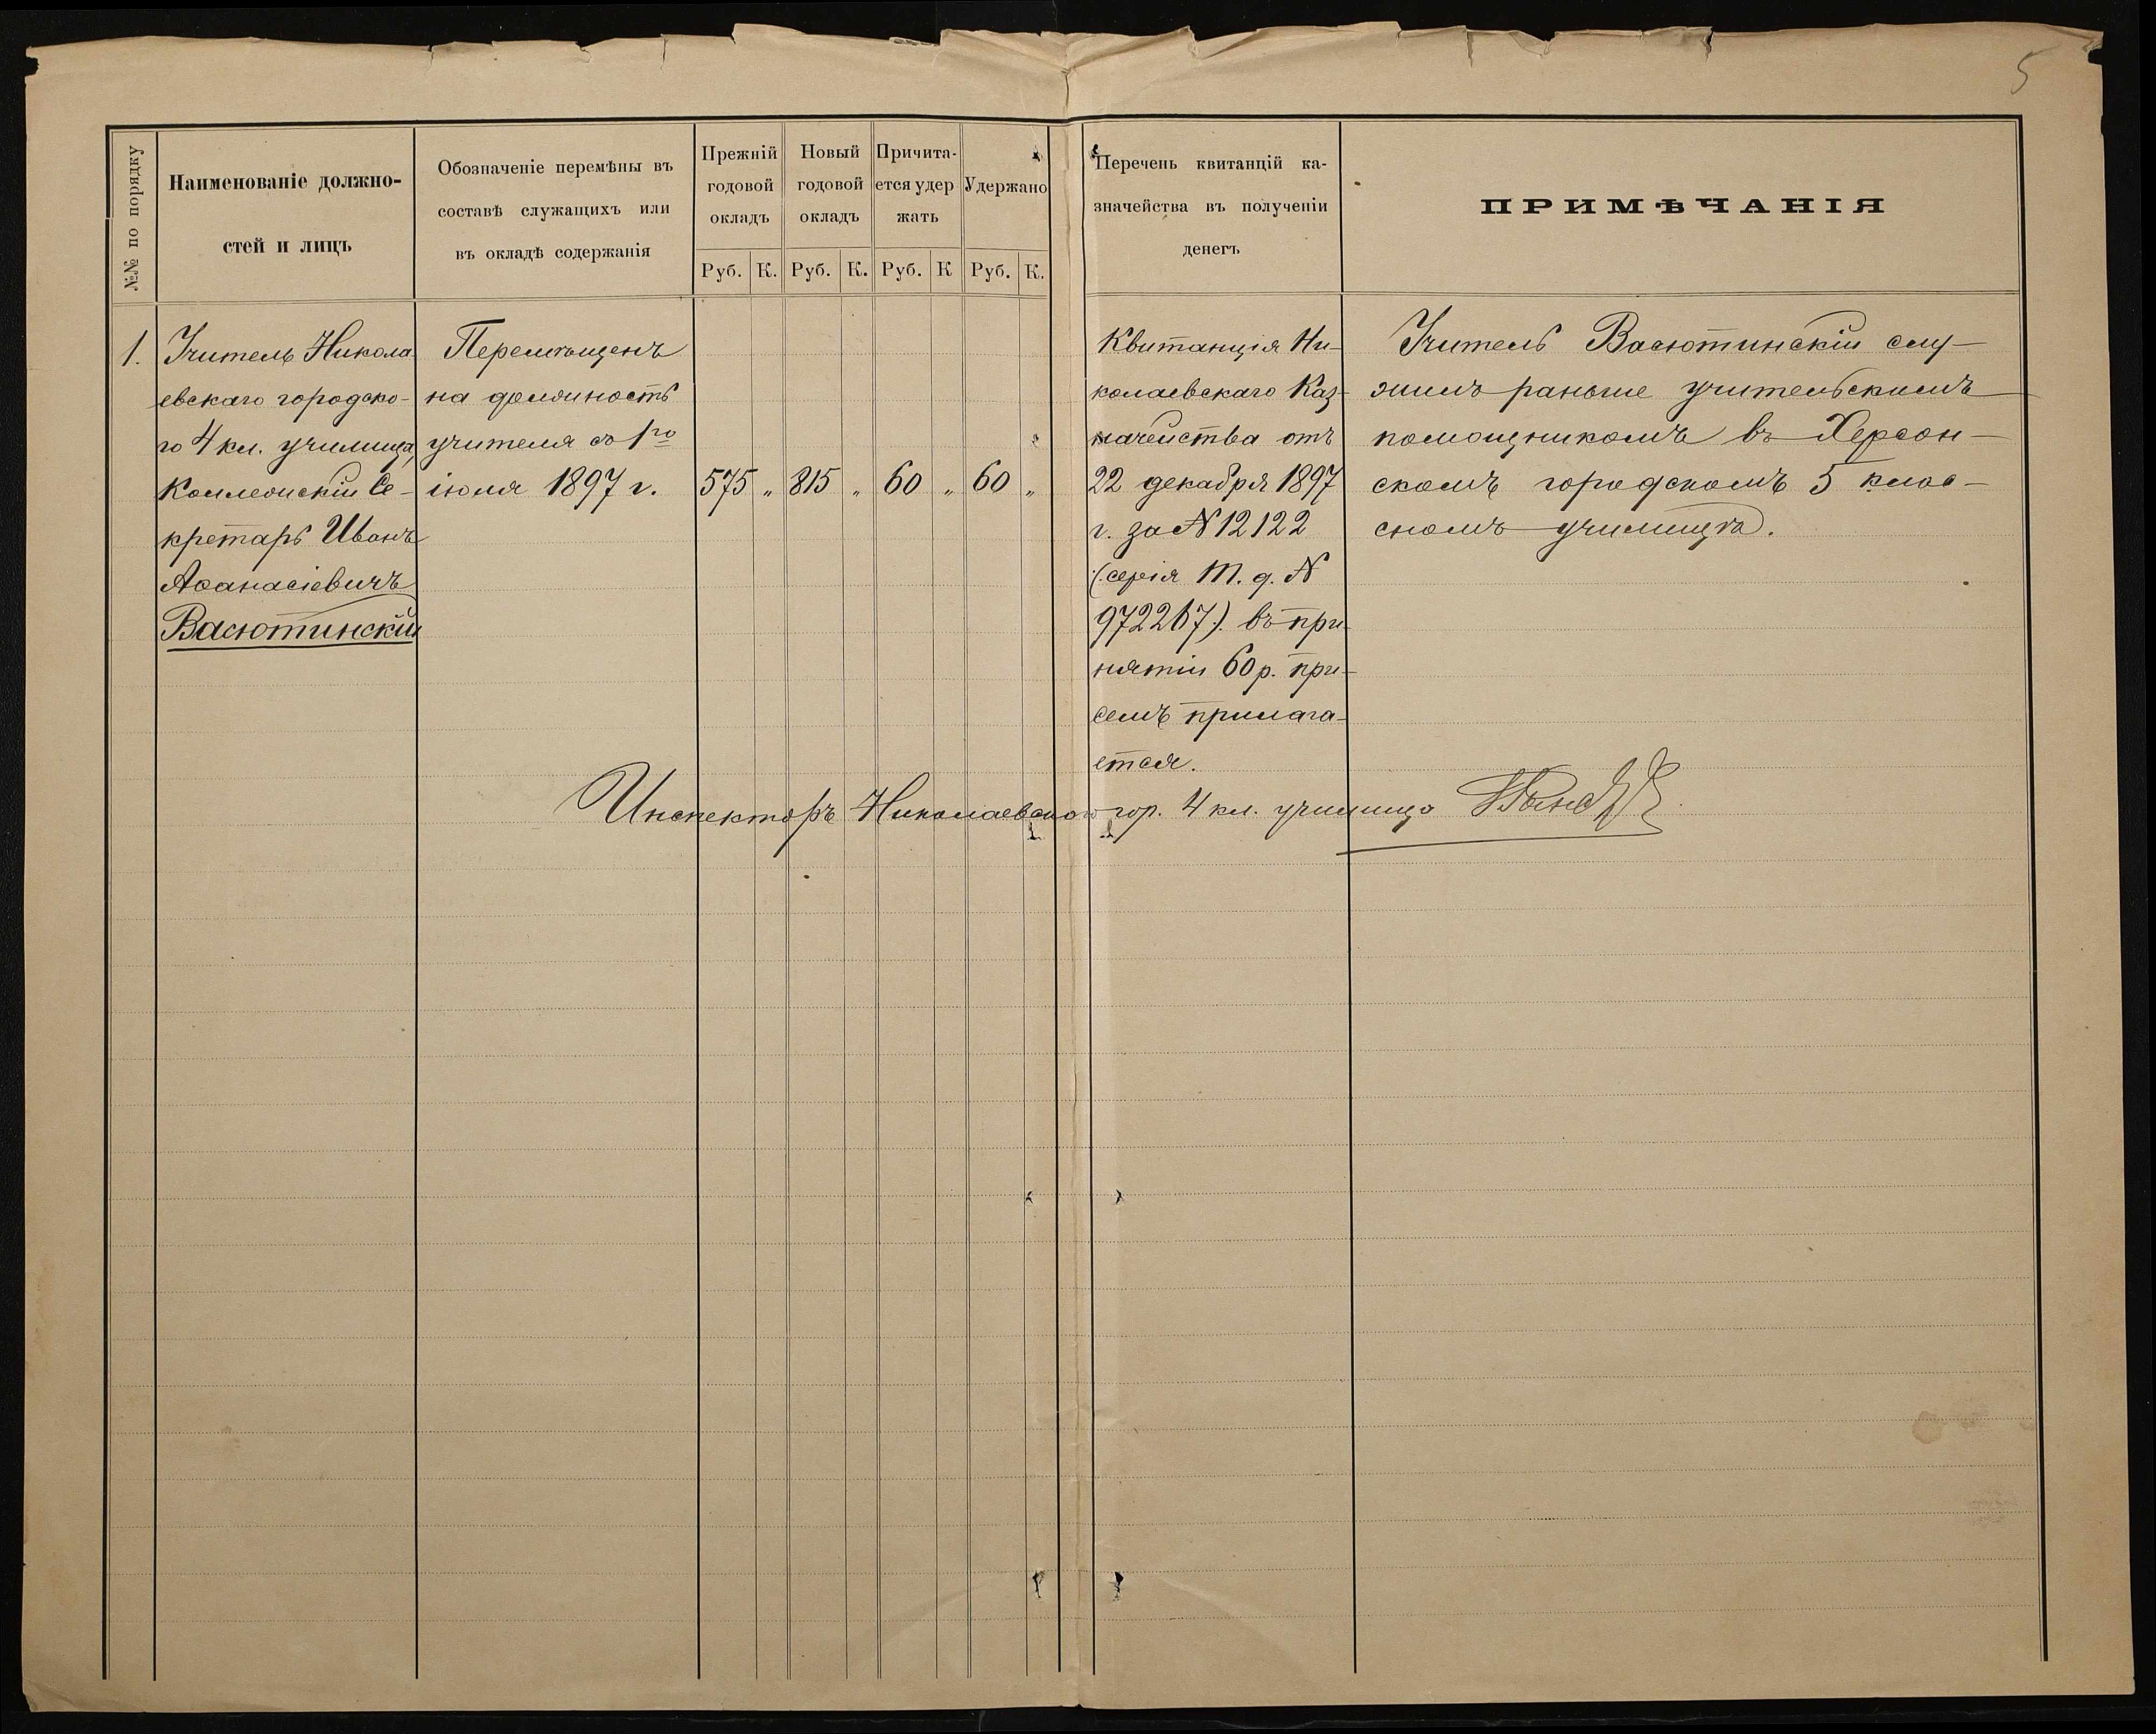 5
№№ по порядку
Наименованіе должно-
стей и лицъ
Обозначеніе перемѣны въ
составѣ служащихъ или
въ окладѣ содержанія
Прежній
годовой
окладъ
Руб. К.
Новый
годовой
окладъ
Руб. К.
Причита-
ется удер
жать
Руб. К
Удержано
Руб. К.
Перечень квитанцій ка-
значейства въ полученіи
денегъ
ПРИМѢЧАНІЯ
1.
Учитель Никола
евскаго городско-
го 4 кл. училища,
Коллежскій Се-
кретарь Иванъ
Аѳанасіевичъ
Васютинскій
Перемѣщенъ
на должность
учителя съ 1го
іюля 1897 г.
575 „ 815 „ 60 „ 60 „
Квитанція Ни-
колаевскаго Каз-
начейства отъ
22 декабря 1897
г. за № 12122
(серія М. д. №
972267). въ при-
нятіи 60 р. при-
семъ прилага-
ется.
Учитель Васютинскій слу-
жилъ раньше учительскимъ
помощникомъ въ Херсон-
скомъ городскомъ 5 клас-
сномъ училищѣ.
Инспекторъ Николаевскаго гор. 4 кл. училища